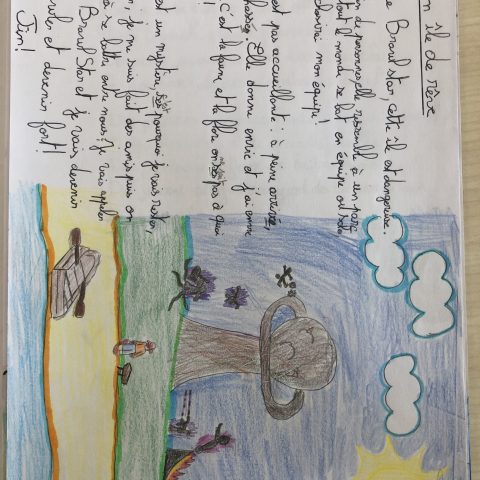 n île de rêve
e Brawl star, cette île est dangereuse.
de personnelle, ressemble à un parc,
tout le monde se bat en équipe ou solo,
choisirai mon équipe!
est pas accueillante: à peine arrivée,
chassée. Elle donne envie et j'ai envie
c'est la faune et la flore, on sait pas à quoi
est un mystère, c'est pourquoi je vais rester,
: je me suis fait des amis puis on
à se battre entre nous! Je vais appeler
Brawl Star et je vais devenir
et devenir fort!
Fin!